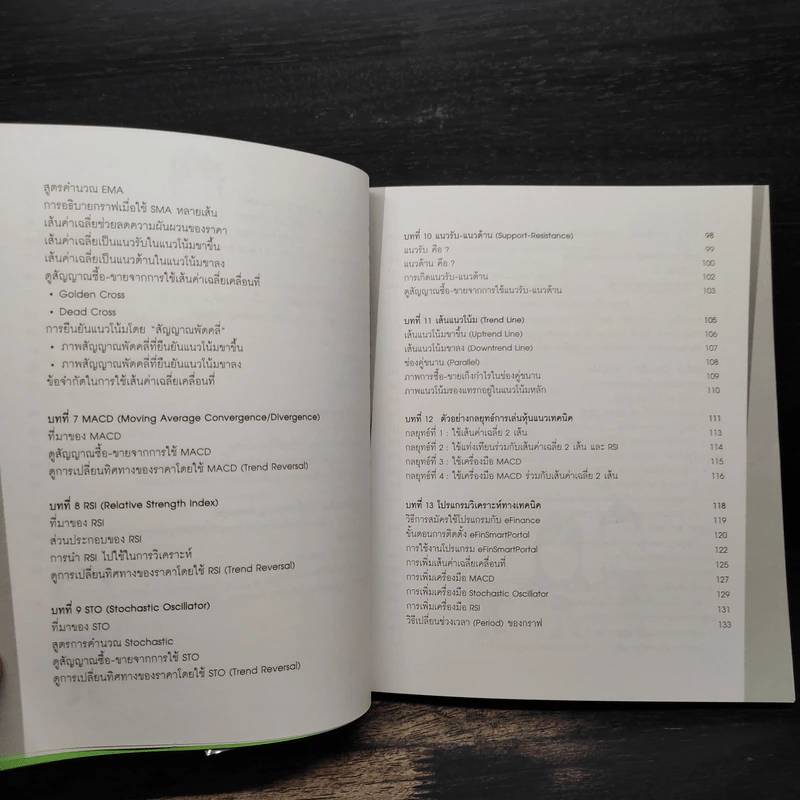 สูตรคำนวณ EMA
การอธิบายกราฟเมื่อใช้ SMA หลายเส้น
เส้นค่าเฉลี่ยช่วยลดความผันผวนของราคา
เส้นค่าเฉลี่ยเป็นแนวรับในแนวโน้มขาขึ้น
เส้นค่าเฉลี่ยเป็นแนวต้านในแนวโน้มขาลง
ดูสัญญาณซื้อ-ขายจากการใช้เส้นค่าเฉลี่ยเคลื่อนที่
• Golden Cross
• Dead Cross
การยืนยันแนวโน้มโดย "สัญญาณพัดคลี่"
• ภาพสัญญาณพัดคลี่ที่ยืนยันแนวโน้มขาขึ้น
• ภาพสัญญาณพัดคลี่ที่ยืนยันแนวโน้มขาลง
ข้อจำกัดในการใช้เส้นค่าเฉลี่ยเคลื่อนที่
บทที่ 7 MACD (Moving Average Convergence/Divergence)
ที่มาของ MACD
ดูสัญญาณซื้อ-ขายจากการใช้ MACD
ดูการเปลี่ยนทิศทางของราคาโดยใช้ MACD (Trend Reversal)
บทที่ 8 RSI (Relative Strength Index)
ที่มาของ RSI
ส่วนประกอบของ RSI
การนำ RSI ไปใช้ในการวิเคราะห์
ดูการเปลี่ยนทิศทางของราคาโดยใช้ RSI (Trend Reversal)
บทที่ 9 STO (Stochastic Oscillator)
ที่มาของ STO
สูตรการคำนวณ Stochastic
ดูสัญญาณซื้อ-ขายจากการใช้ STO
ดูการเปลี่ยนทิศทางของราคาโดยใช้ STO (Trend Reversal)
บทที่ 10 แนวรับ-แนวต้าน (Support-Resistance) 98
แนวรับ คือ ? 99
แนวต้าน คือ ? 100
การเกิดแนวรับ-แนวต้าน 102
ดูสัญญาณซื้อ-ขายจากการใช้แนวรับ-แนวต้าน 103
บทที่ 11 เส้นแนวโน้ม (Trend Line) 105
เส้นแนวโน้มขาขึ้น (Uptrend Line) 106
เส้นแนวโน้มขาลง (Downtrend Line) 107
ช่องคู่ขนาน (Parallel) 108
ภาพการซื้อ-ขายเก็งกำไรในช่องคู่ขนาน 109
ภาพแนวโน้มรองแทรกอยู่ในแนวโน้มหลัก 110
บทที่ 12 ตัวอย่างกลยุทธ์การเล่นหุ้นแนวเทคนิค 111
กลยุทธ์ที่ 1 : ใช้เส้นค่าเฉลี่ย 2 เส้น 113
กลยุทธ์ที่ 2 : ใช้แท่งเทียนร่วมกับเส้นค่าเฉลี่ย 2 เส้น และ RSI 114
กลยุทธ์ที่ 3 : ใช้เครื่องมือ MACD 115
กลยุทธ์ที่ 4 : ใช้เครื่องมือ MACD ร่วมกับเส้นค่าเฉลี่ย 2 เส้น 116
บทที่ 13 โปรแกรมวิเคราะห์ทางเทคนิค 118
วิธีการสมัครใช้โปรแกรมกับ eFinance 119
ขั้นตอนการติดตั้ง eFinSmartPortal 120
การใช้งานโปรแกรม eFinSmartPortal 122
การเพิ่มเส้นค่าเฉลี่ยเคลื่อนที่ 125
การเพิ่มเครื่องมือ MACD 127
การเพิ่มเครื่องมือ Stochastic Oscillator 129
การเพิ่มเครื่องมือ RSI 131
วิธีเปลี่ยนช่วงเวลา (Period) ของกราฟ 133